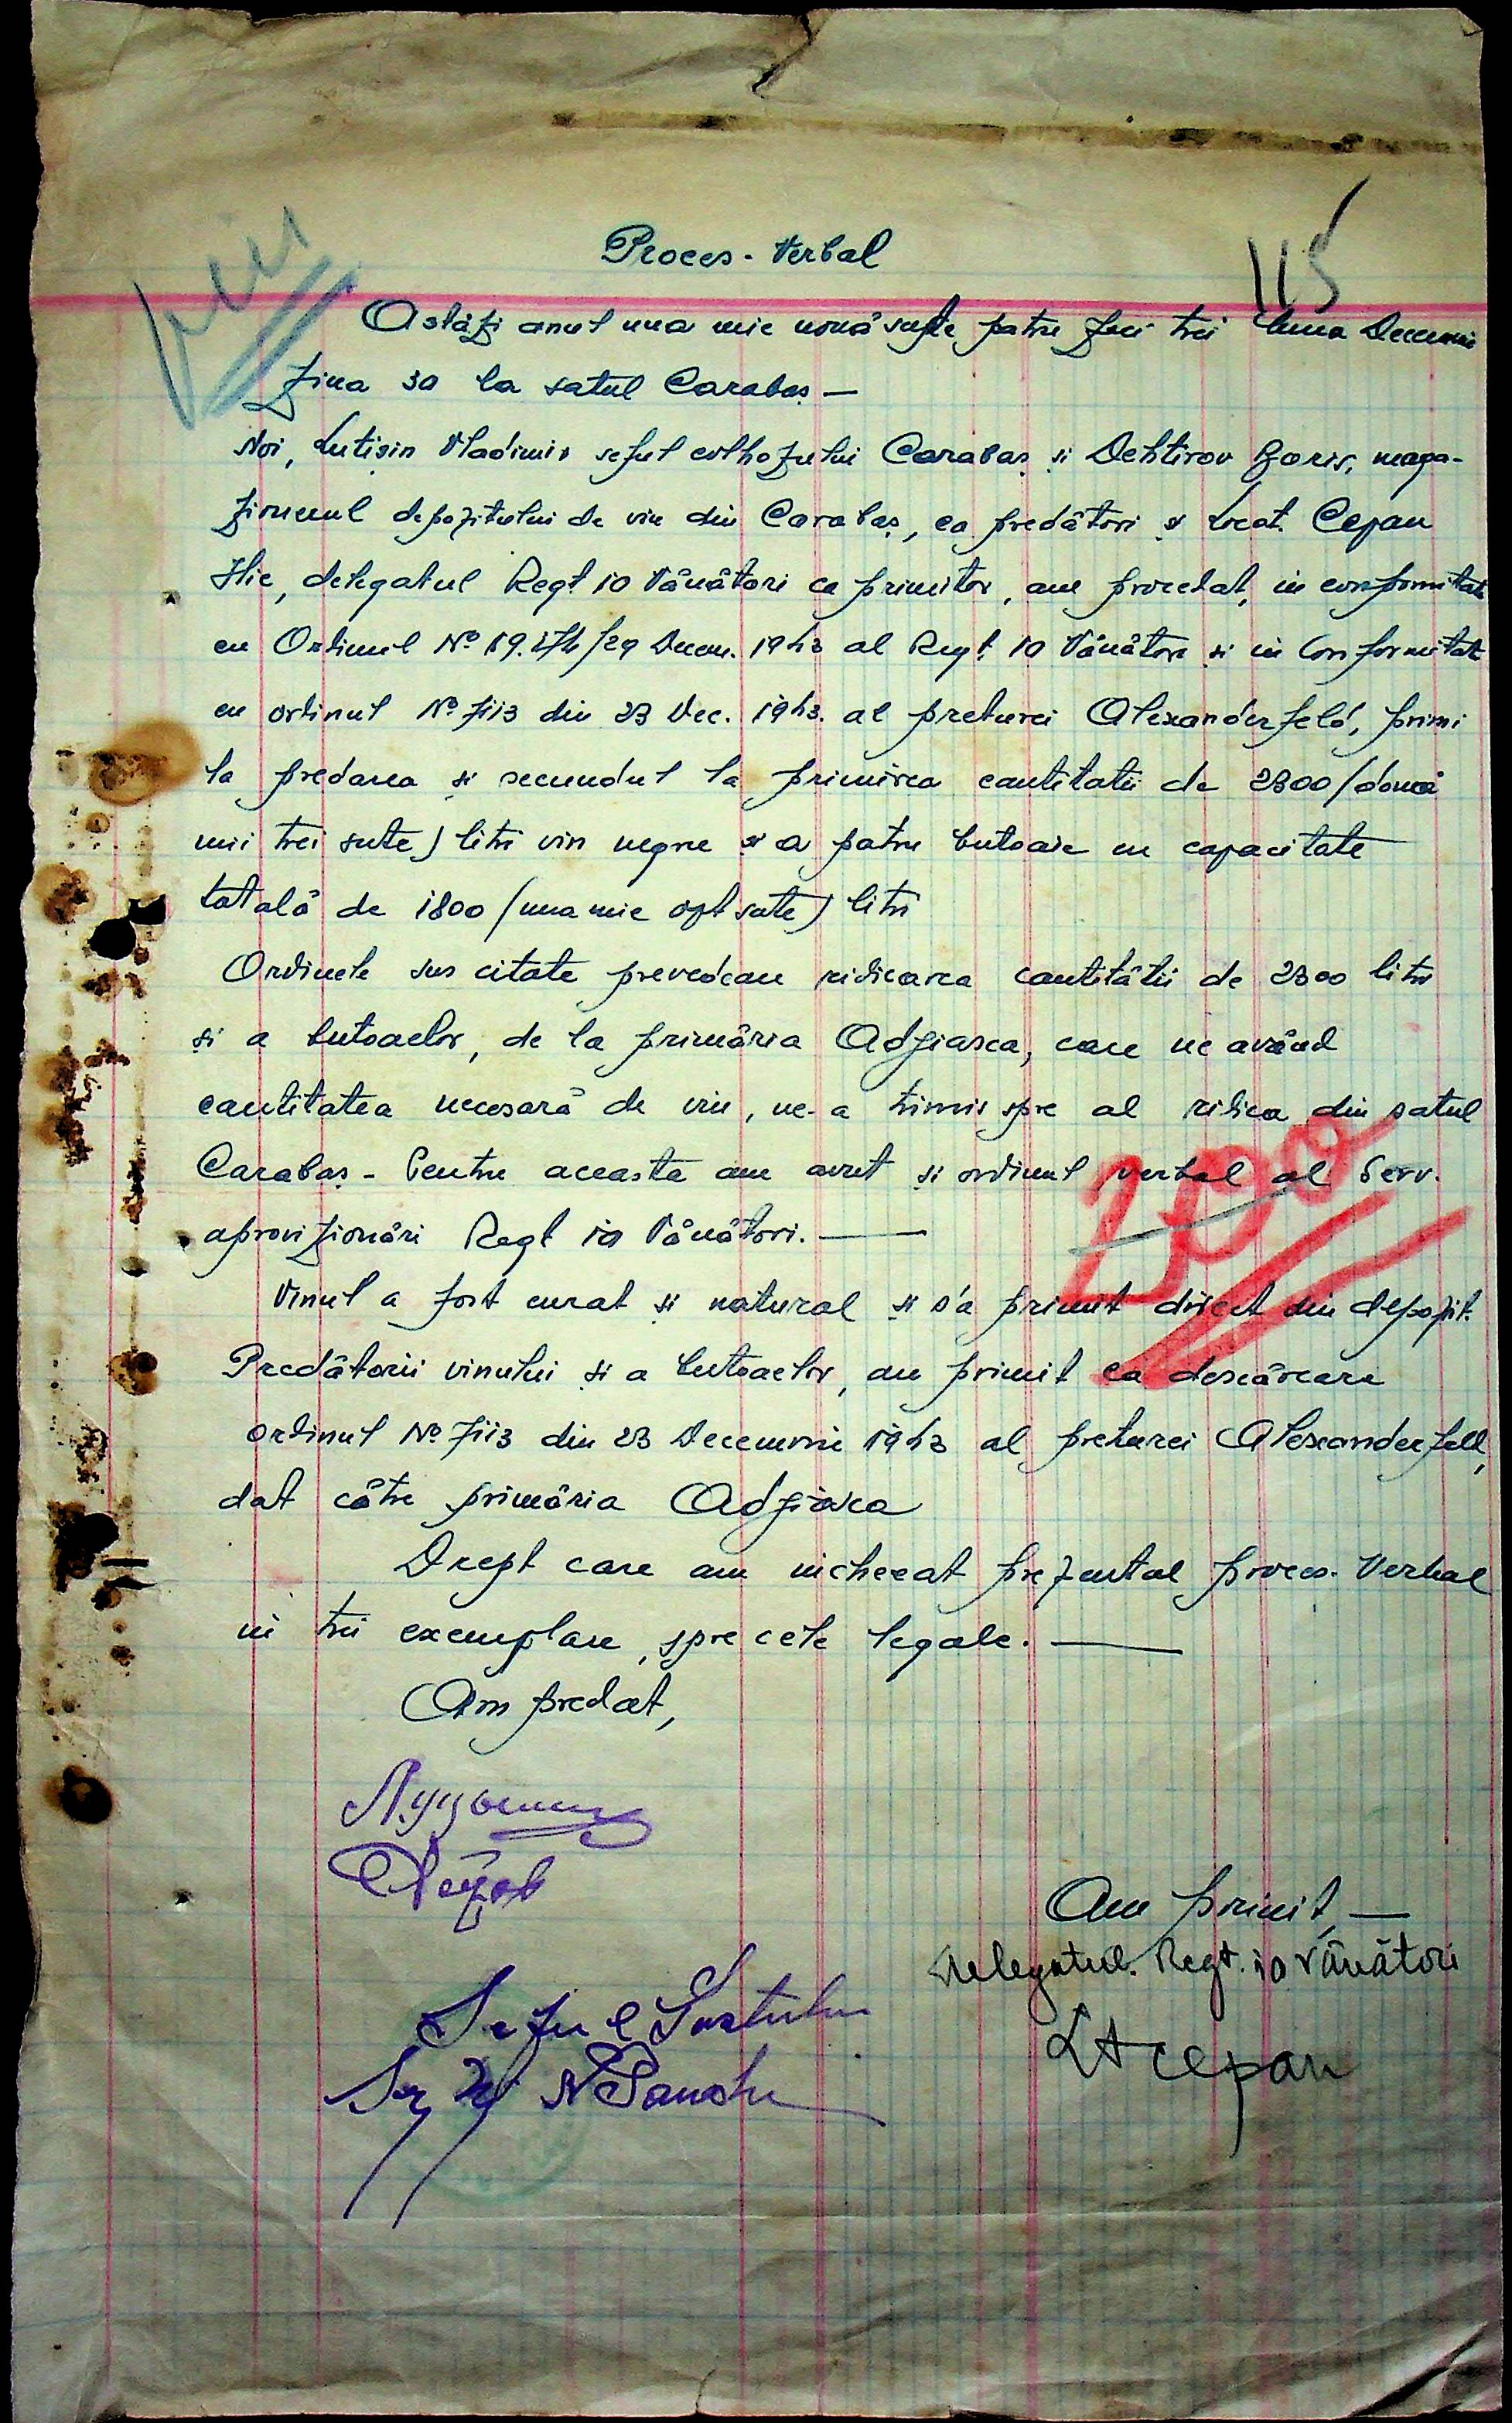 115
Proces-Verbal
Astăzi anul una mie nouă sute patru zeci trei luna Decemvrie
ziua 30 la satul Carabaș —
Noi, Lutișin Vladimir șeful colhozului Carabaș și Dehtirov Boris, maga-
zionerul depozitului de vin din Carabaș, ca predători și Locot. Cepan
Ilie, delegatul Regt 10 Vânători ca primitor, am procedat, în conformitate
cu Ordinul No 19.274/29 Decem. 1943 al Regt. 10 Vânători și în conformitate
cu ordinul No 7113 din 23 Dec. 1943. al preturei Alexanderfeld, primi
la predarea și secundul la primirea cantitatii de 2300 /două
mii trei sute) litri vin negru și a patru butoaie cu capacitate
totală de 1800 /una mie opt sute) litri
Ordinele sus citate prevedeau ridicarea cantității de 2300 litri
și a butoaelor, de la primăria Adjiasca, care ne având
cantitatea necesară de vin, ne-a trimis spre al ridica din satul
Carabaș - Pentru aceasta am avut și ordinul verbal al Serv.
aprovizionări Regt 10 Vânători. —
2300
Vinul a fost curat și natural și s'a primit direct din depozit.
Predătorii vinului și a butoaelor, au primit ca descărcare
ordinul No 7113 din 23 Decemvrie 1943 al preturei Alexanderfeld,
dat către primăria Adjiasca
Drept care am incheeat prezentul proces-Verbal
în trei exemplare, spre cele legale. —
Am predat,
Am primit, —
Delegatul. Regt. 10 Vânători
Șeful Postului
Lt Cepan